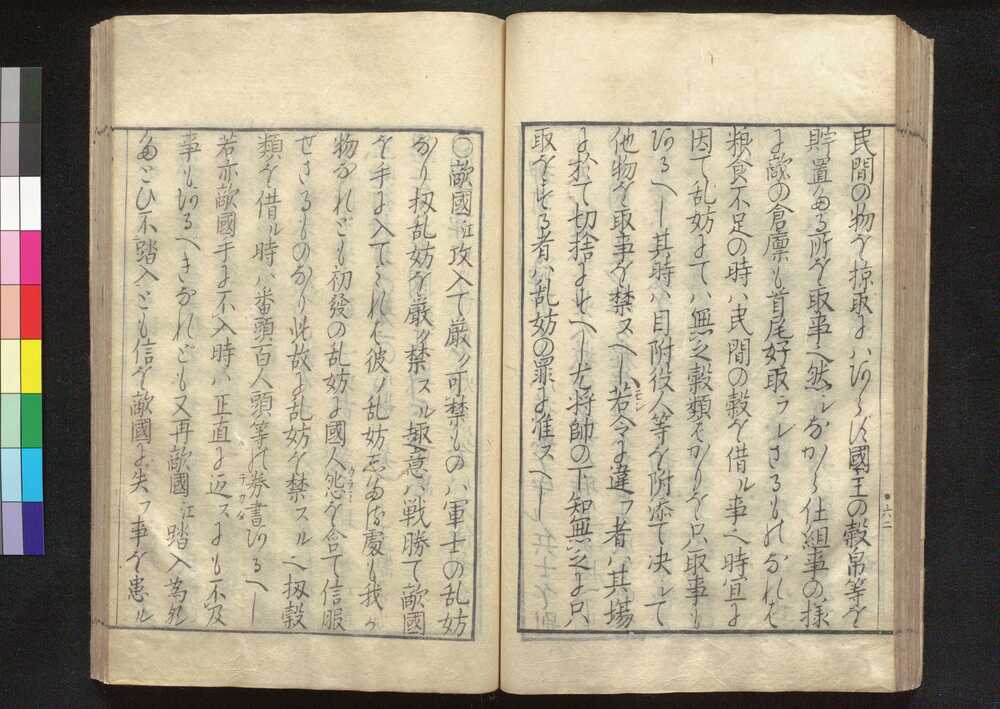 民間の物を掠取にハあらす國王の穀帛等を
貯置たる所を取事ヘ然レなから仕組事の様
に敵の倉廩も首尾好取ラレさるものなれは
粮食不足の時ハ民間の穀を借ル事ヘ時宜に
因て乱妨まてハ無之穀類はかりを只取事も
あるへし其時ハ目附役人等を附添て決して
他物を取事を禁スヘし若モシ令に違フ者ハ其場
に於て切捨にすへし尤将帥の下知無之に只
取をする者ハ乱妨の罪に准スヘし
六二
〇敵國江攻入て厳ク可禁ものハ軍士の乱妨
なり扨乱妨を厳ク禁スル趣意ハ戦勝て敵國
を手に入てくれは彼ノ乱妨したる處も我か
物なれども初發の乱妨に國人怨ウラミを含て信服
せさるものなり此故に乱妨を禁スルヘ扨穀
類を借ル時ハ番頭百人頭等の券書テガタあるへし
若亦敵國手に不入時ハ正直に返スにも不及
事もあるへきなれども又再敵國江踏入為
たとひ不踏入とも信を敵國に失フ事を患ル